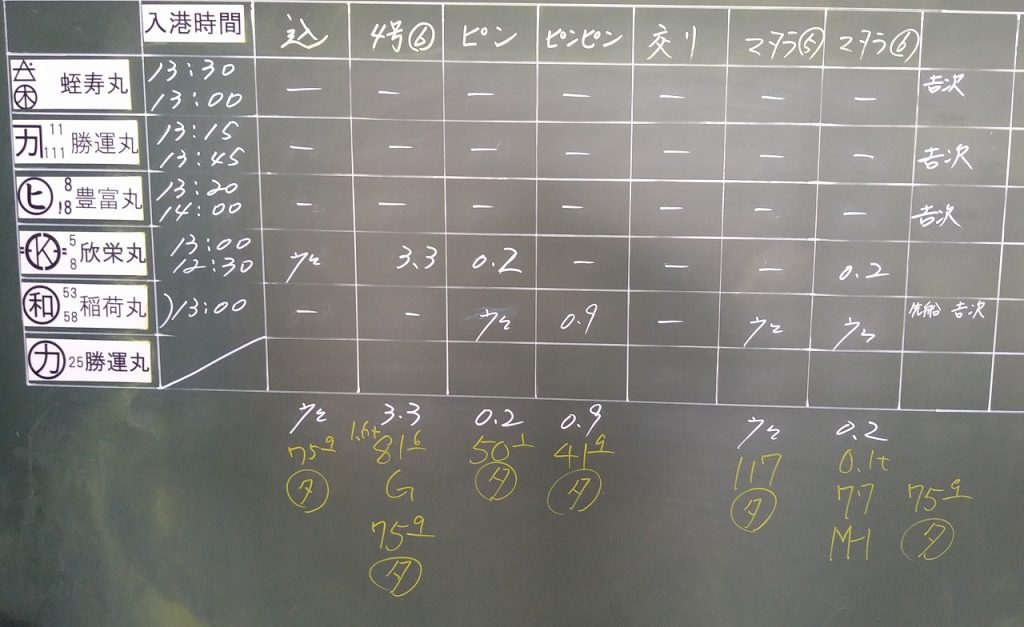 入港時間 込 4号⑥ ピン ピンピン 交り マダラ⑤ マダラ⑥
蛭寿丸 13:30 13:00 — — — — — — — 吉次
カ 11 111 勝運丸 13:15 13:45 — — — — — — — 吉次
ヒ 8 18 豊富丸 13:20 14:00 — — — — — — — 吉次
K 5 8 欣栄丸 13:00 12:30 3.3 0.2 — — — 0.2
和 53 58 稲荷丸 )13:00 — — 0.9 — 先船 吉次
カ 25 勝運丸
3.3 0.2 0.9 0.2
75 9 1.6t 81 6 50 1 41 9 117 0.1t
タ G タ タ タ 77 75 9
75 9 M-1 タ
タ